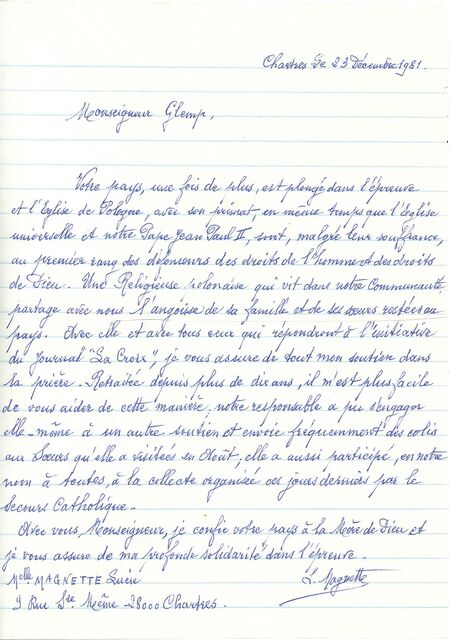 Chartres le 23 Décembre 1981.
Monseigneur Glemp,
Votre pays, une fois de plus, est plongé dans l'épreuve
et l'Eglise de Pologne, avec son primat, en même temps que l'Eglise
universelle et notre Pape Jean Paul II, sont, malgré leur souffrance,
au premier rang des défenseurs des droits de l'homme et des droits
de Dieu. Une Religieuse polonaise qui vit dans notre Communauté
partage avec nous l'angoisse de sa famille et de ses sœurs restées au
pays. Avec elle et avec tous ceux qui répondront à l'initiative
du Journal "La Croix", je vous assure de tout mon soutien dans
la prière. Retraitée depuis plus de dix ans, il m'est plus facile
de vous aider de cette manière, notre responsable a pu s'engager
elle-même à un autre soutien et envoie fréquemment des colis
aux Sœurs qu'elle a visitées en Août, elle a aussi participé, en notre
nom à toutes, à la collecte organisée ces jours derniers par le
Secours Catholique.
Avec vous, Monseigneur, je confie votre pays à la Mère de Dieu et
je vous assure de ma profonde solidarité dans l'épreuve.
Melle MAGNETTE Lucie
L. Magnette
9 Rue Ste Même 28000 Chartres.